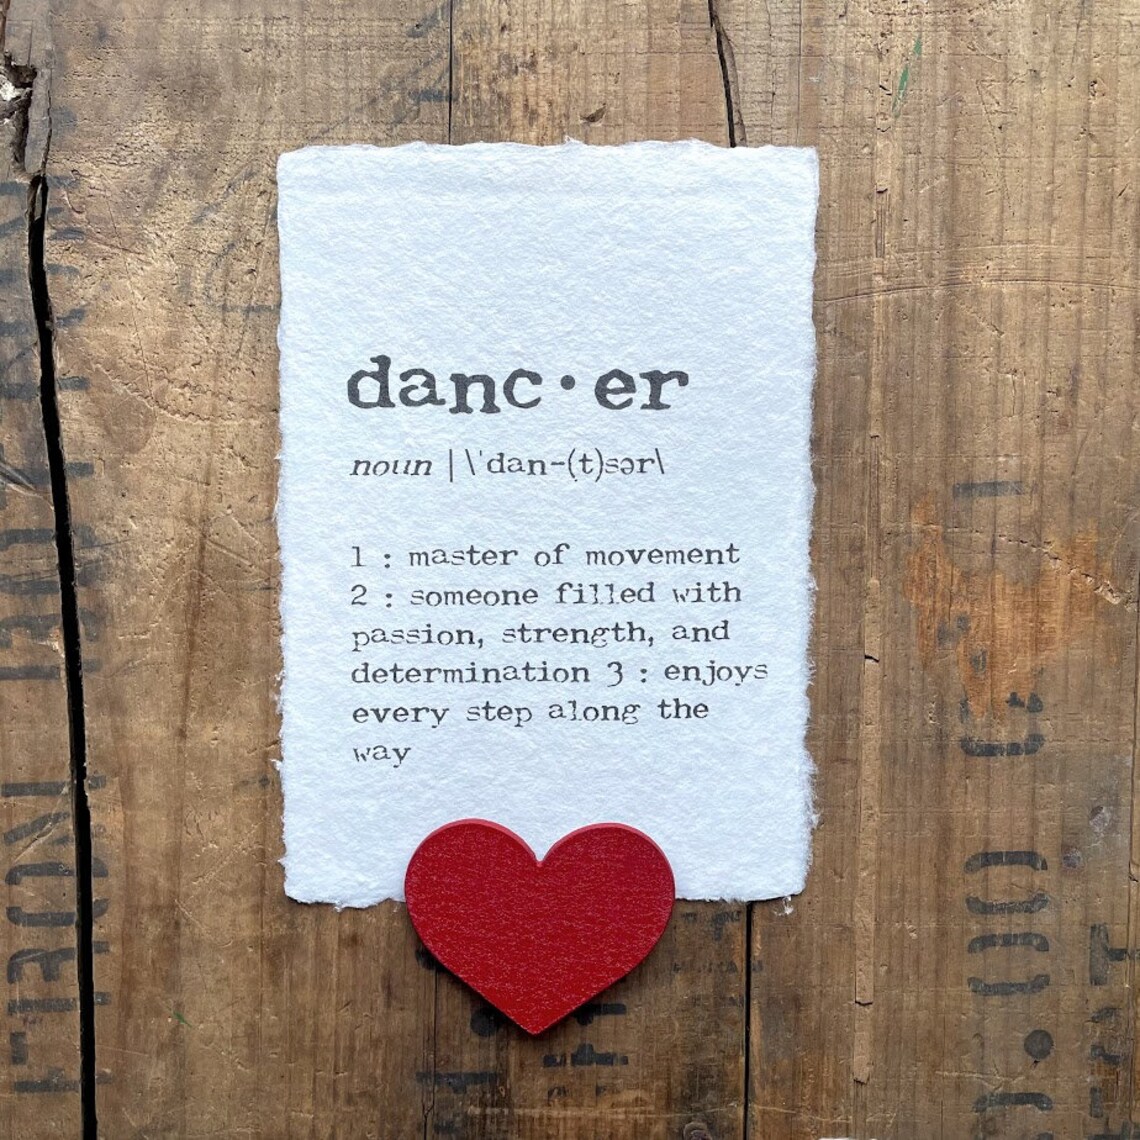 danc·er
noun | \ˈdan-(t)sər\
1 : master of movement
2 : someone filled with
passion, strength, and
determination 3 : enjoys
every step along the
way